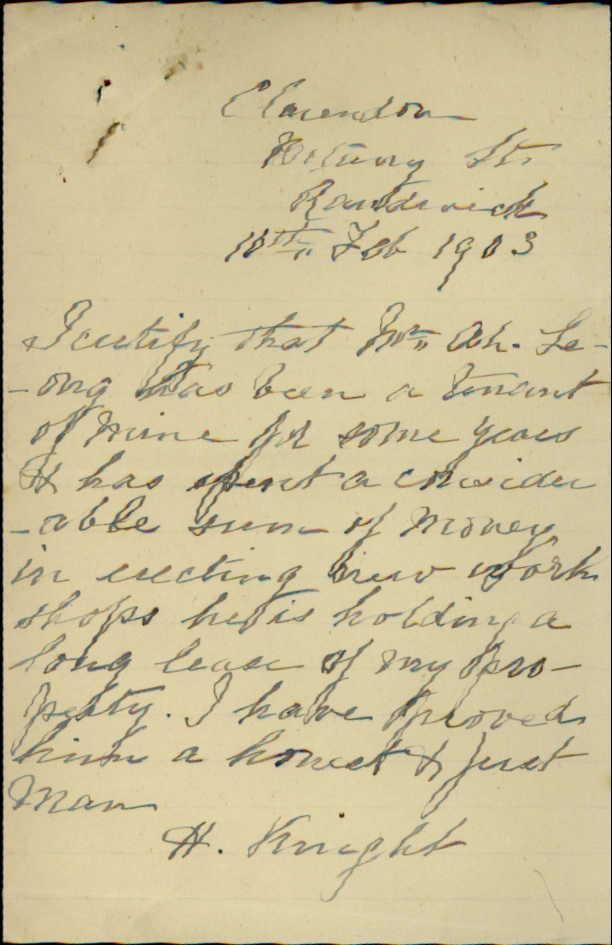 Clarendon
St.
Randwick
10th,, Feb 1903
I certify that Mr,, Ah. Le-
-ong has been a tenant
of mine for some years
& has spent a consider
-able sum of money
in erecting new work
shops he is holding a
long lease of my pro-
perty. I have proved
him a honest & just
Man
H. Knight